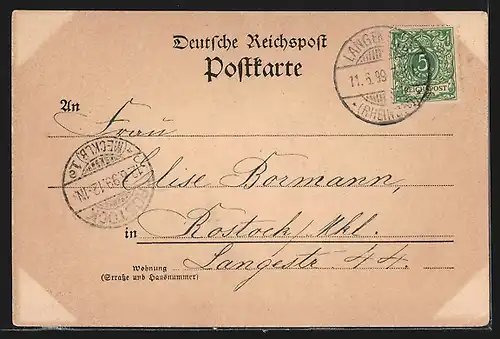 Deutsche Reichspost
Postkarte
LANGEN
11.6.99
(RHEIN
5
REICHSPOST
An
Frau
Elise Bormann,
ROSTOCK
(MECKLB)
12.6.99.12-1N
in Rostock i/Mkl.
Wohnung
(Straße und Hausnummer)
Langestr 44.